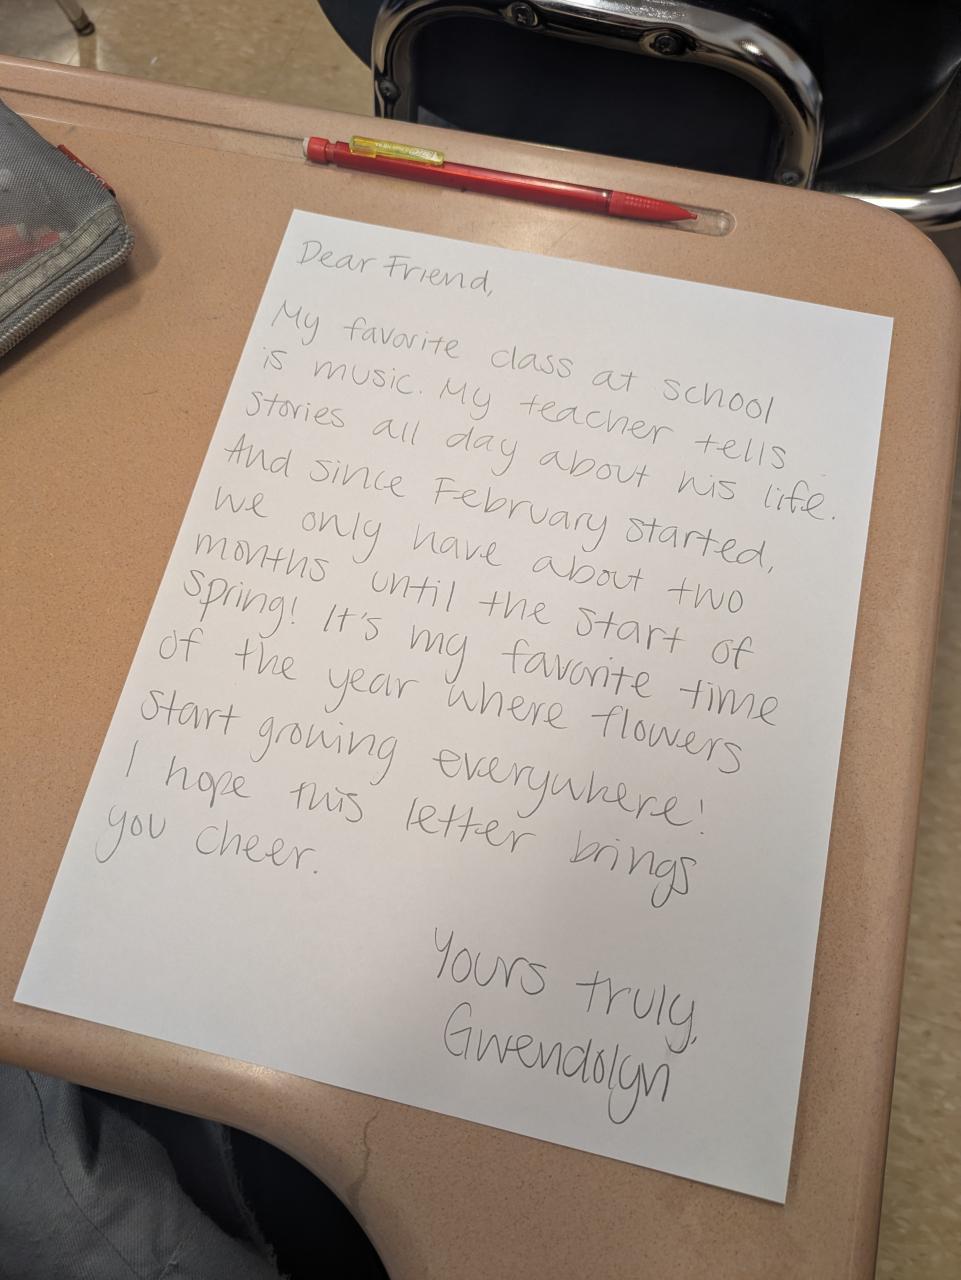 Dear Friend,
My favorite class at school
is music. My teacher tells
stories all day about his life.
And since February started,
we only have about two
months until the start of
spring! It's my favorite time
of the year where flowers
start growing everywhere!
I hope this letter brings
you cheer.
Yours truly,
Gwendolyn